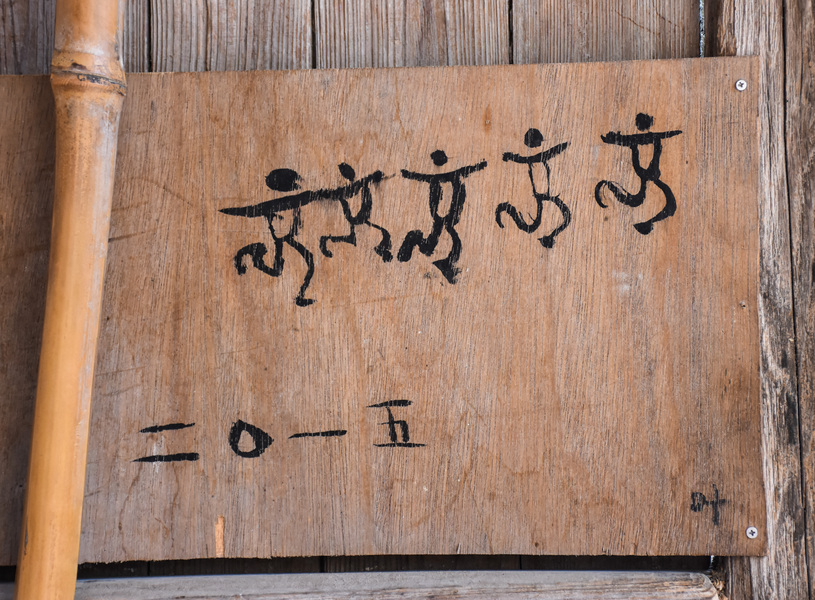 二〇一五
叶